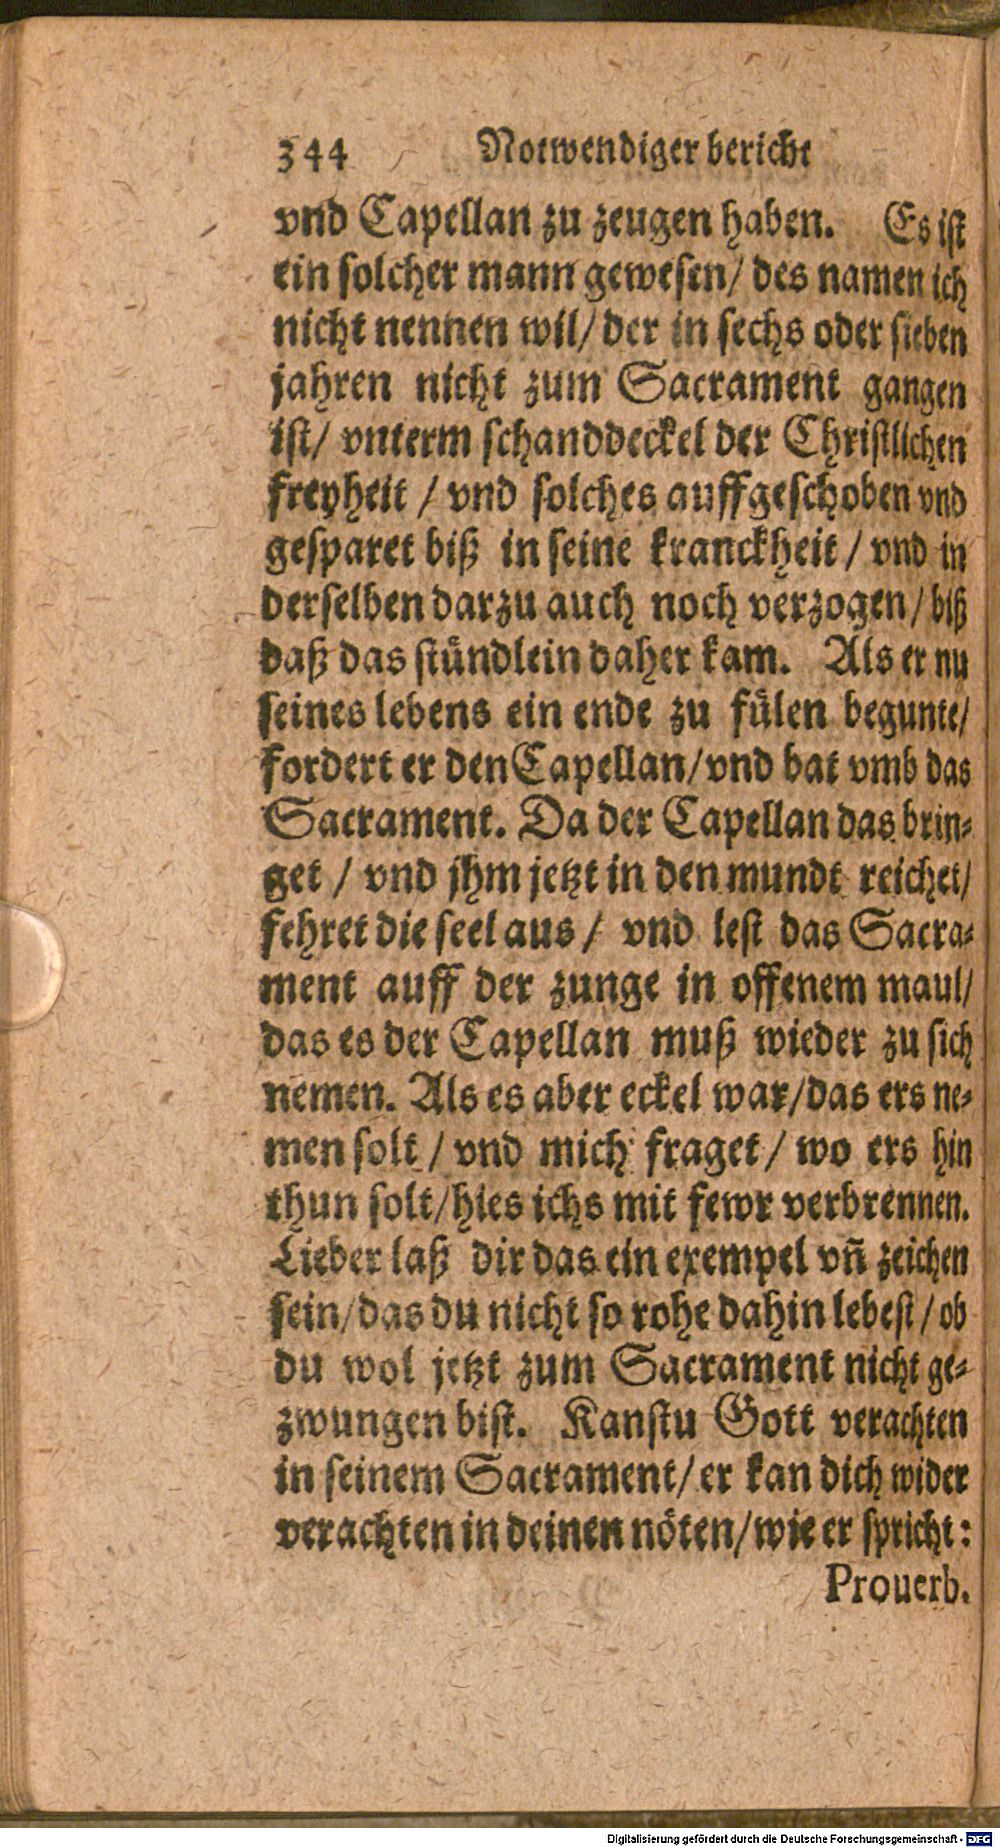 344 Notwendiger bericht
vnd Capellan zu zeugen haben. Es ist
ein solcher mann gewesen/ des namen ich
nicht nennen wil/ der in sechs oder sieben
jahren nicht zum Sacrament gangen
ist/ vnterm schanddeckel der Christlichen
freyheit / vnd solches auffgeschoben vnd
gesparet biß in seine kranckheit / vnd in
derselben darzu auch noch verzogen/ biß
daß das stündlein daher kam. Als er nu
seines lebens ein ende zu fülen begunte/
fordert er den Capellan/ vnd bat vmb das
Sacrament. Da der Capellan das brin⸗
get / vnd jhm jetzt in den mundt reichet/
fehret die seel aus / vnd lest das Sacra⸗
ment auff der zunge in offenem maul/
das es der Capellan muß wieder zu sich
nemen. Als es aber eckel war/ das ers ne⸗
men solt / vnd mich fraget / wo ers hin
thun solt/ hies ichs mit fewr verbrennen.
Lieber laß dir das ein exempel vn̄ zeichen
sein/ das du nicht so rohe dahin lebest / ob
du wol jetzt zum Sacrament nicht ge⸗
zwungen bist. Kanstu Gott verachten
in seinem Sacrament/ er kan dich wider
verachten in deinen nöten/ wie er spricht:
Prouerb.
Digitalisierung gefördert durch die Deutsche Forschungsgemeinschaft - DFG